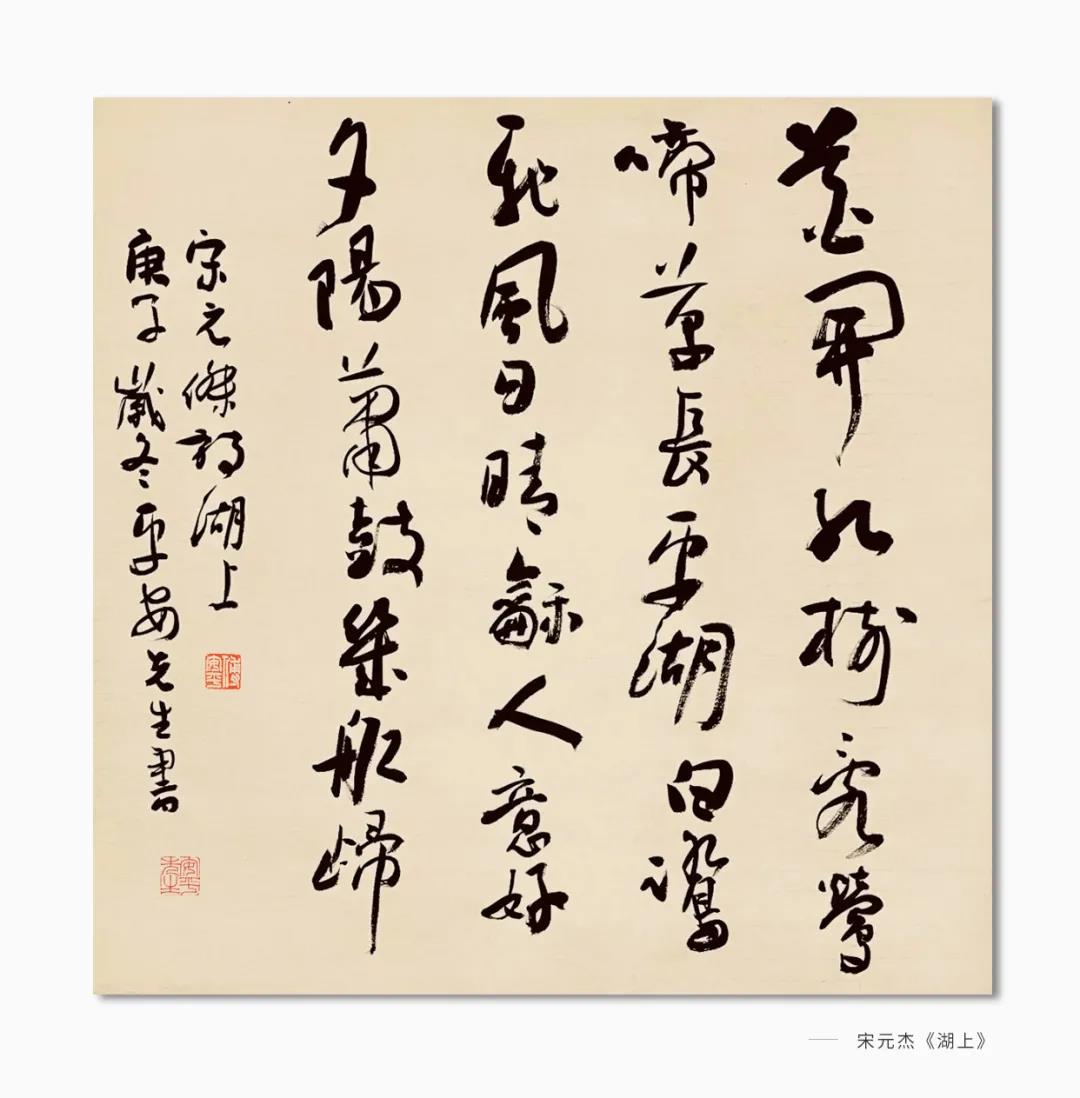 花開紅樹亂鶯
啼草長平湖白鷺
飛風日晴龢人意好
夕陽蕭鼓幾船歸
宋元傑詩湖上
庚子歲冬平安先生書
—— 宋元杰《湖上》